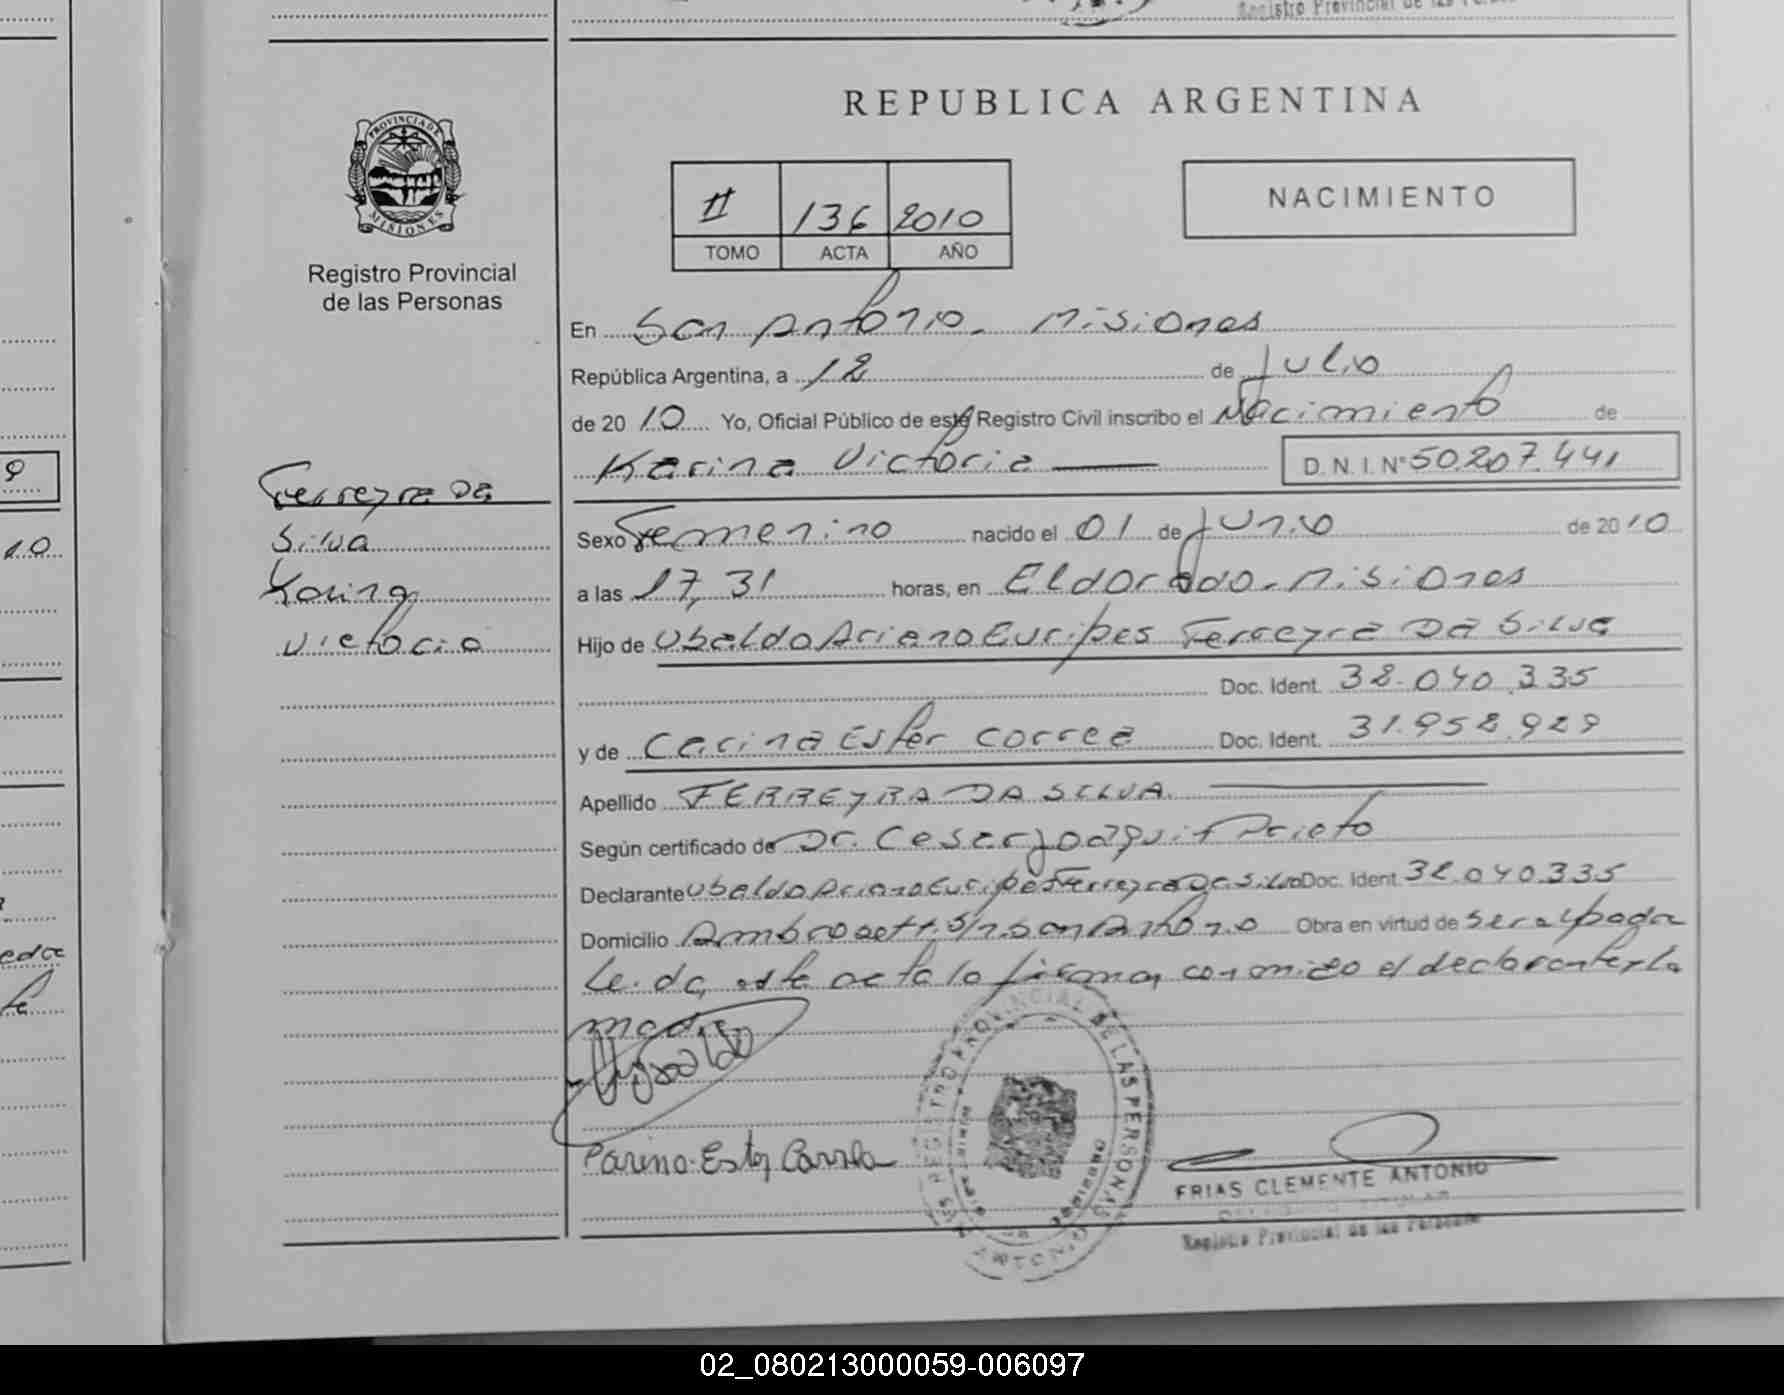 Registro Provincial de las Personas
REPUBLICA ARGENTINA
PROVINCIA DE
MISIONES
Registro Provincial
de las Personas
II 136 2010
TOMO ACTA AÑO
NACIMIENTO
En San Antonio. Misiones
República Argentina, a 12 de Julio
de 2010 Yo, Oficial Público de este Registro Civil inscribo el Nacimiento de
Karina Victoria D. N. I. N° 50.207.441
Ferreyra Da
Silva
Karina
Victoria
Sexo Femenino nacido el 01 de Junio de 2010
a las 17,31 horas, en Eldorado. Misiones
Hijo de Ubaldo Ariano Euripes Ferreyra Da Silva
Doc. Ident. 38.040.335
y de Carina Ester Correa Doc. Ident. 31.958.929
Apellido FERREYRA DA SILVA
Según certificado de Dr. Cesar Joaquin Prieto
Declarante Ubaldo Ariano Euripes Ferreyra Da Silva Doc. Ident. 38.040.335
Domicilio Ambrosetti S/n. San Antonio Obra en virtud de ser a
Leida este acta la firman conmigo el declarante y la
madre
Ubaldo
Carina Ester Correa
REGISTRO PROVINCIAL DE LAS PERSONAS
FRIAS CLEMENTE ANTONIO
Registro Provincial de las Personas
9
10
02_080213000059-006097